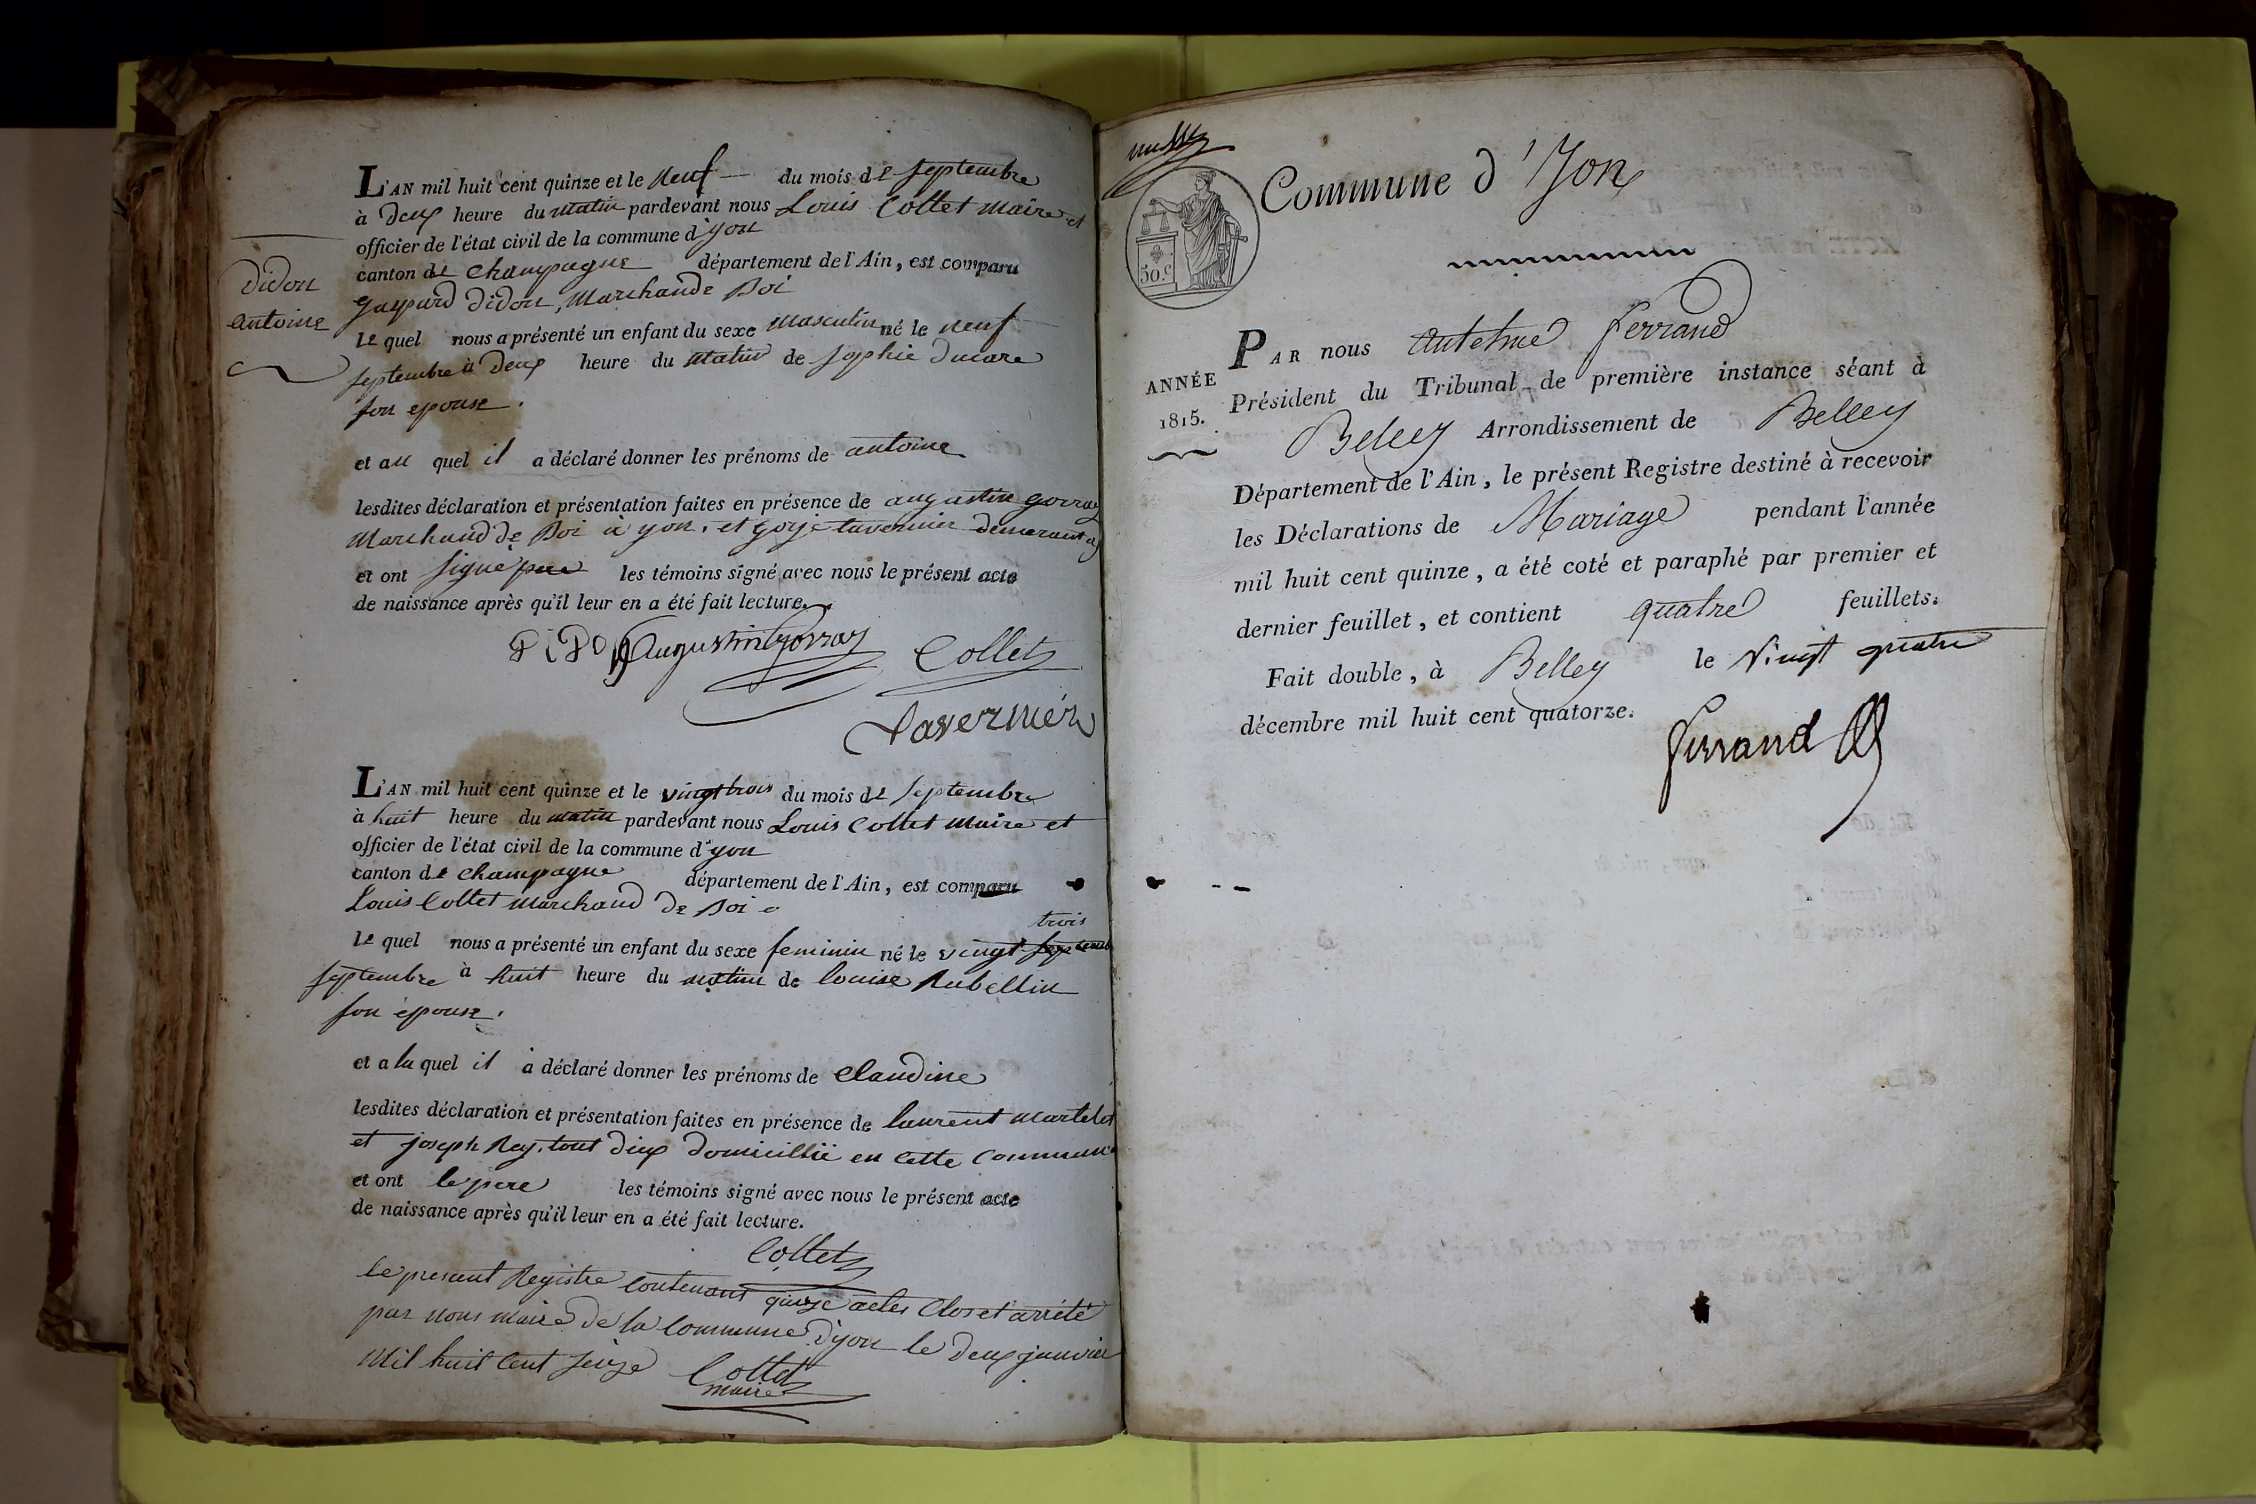 L'AN mil huit cent quinze et le neuf du mois de septembre
à deux heure du matin pardevant nous Louis Collet maire et
officier de l'état civil de la commune d'yon
canton de champagne département de l'Ain, est comparu
gaspard didon, marchande Boi
le quel nous a présenté un enfant du sexe masculin né le neuf
septembre à deux heure du matin de sophie ducare
son epouse.
et au quel il a déclaré donner les prénoms de antoine
lesdites déclaration et présentation faites en présence de augustin gorraz
marchand de Boi à yon. et tavernier
et ont signé pere les témoins signé avec nous le présent acte
de naissance après qu'il leur en a été fait lecture.
didon
antoine
Augustin Gorraz Collet
Tavernier
L'AN mil huit cent quinze et le vingt trois du mois de septembre
à huit heure du matin pardevant nous Louis Collet maire et
officier de l'état civil de la commune d'yon
canton de champagne département de l'Ain, est comparu
Louis Collet marchand de Boi
trois
le quel nous a présenté un enfant du sexe feminin né le vingt
septembre à huit heure du matin de louise Rubellin
son épouse.
et a la quel il a déclaré donner les prénoms de claudine
lesdites déclaration et présentation faites en présence de laurent martelet
et joseph Rey, tout deux domicillié en cette commune
et ont le pere les témoins signé avec nous le présent acte
de naissance après qu'il leur en a été fait lecture.
Collet
le present Registre contenant quinze actes clos et arrété
par nous maire de la commune d'yon le deux janvier
mil huit cent seize Collet
maire
Commune d'Yon
50.c
PAR nous Antelme Ferrand
ANNÉE
1815.
Président du Tribunal de première instance séant à
Belley Arrondissement de Belley
Département de l'Ain, le présent Registre destiné à recevoir
les Déclarations de Mariage pendant l'année
mil huit cent quinze, a été coté et paraphé par premier et
dernier feuillet, et contient quatre feuillets.
Fait double, à Belley le vingt quatre
décembre mil huit cent quatorze.
Ferrand